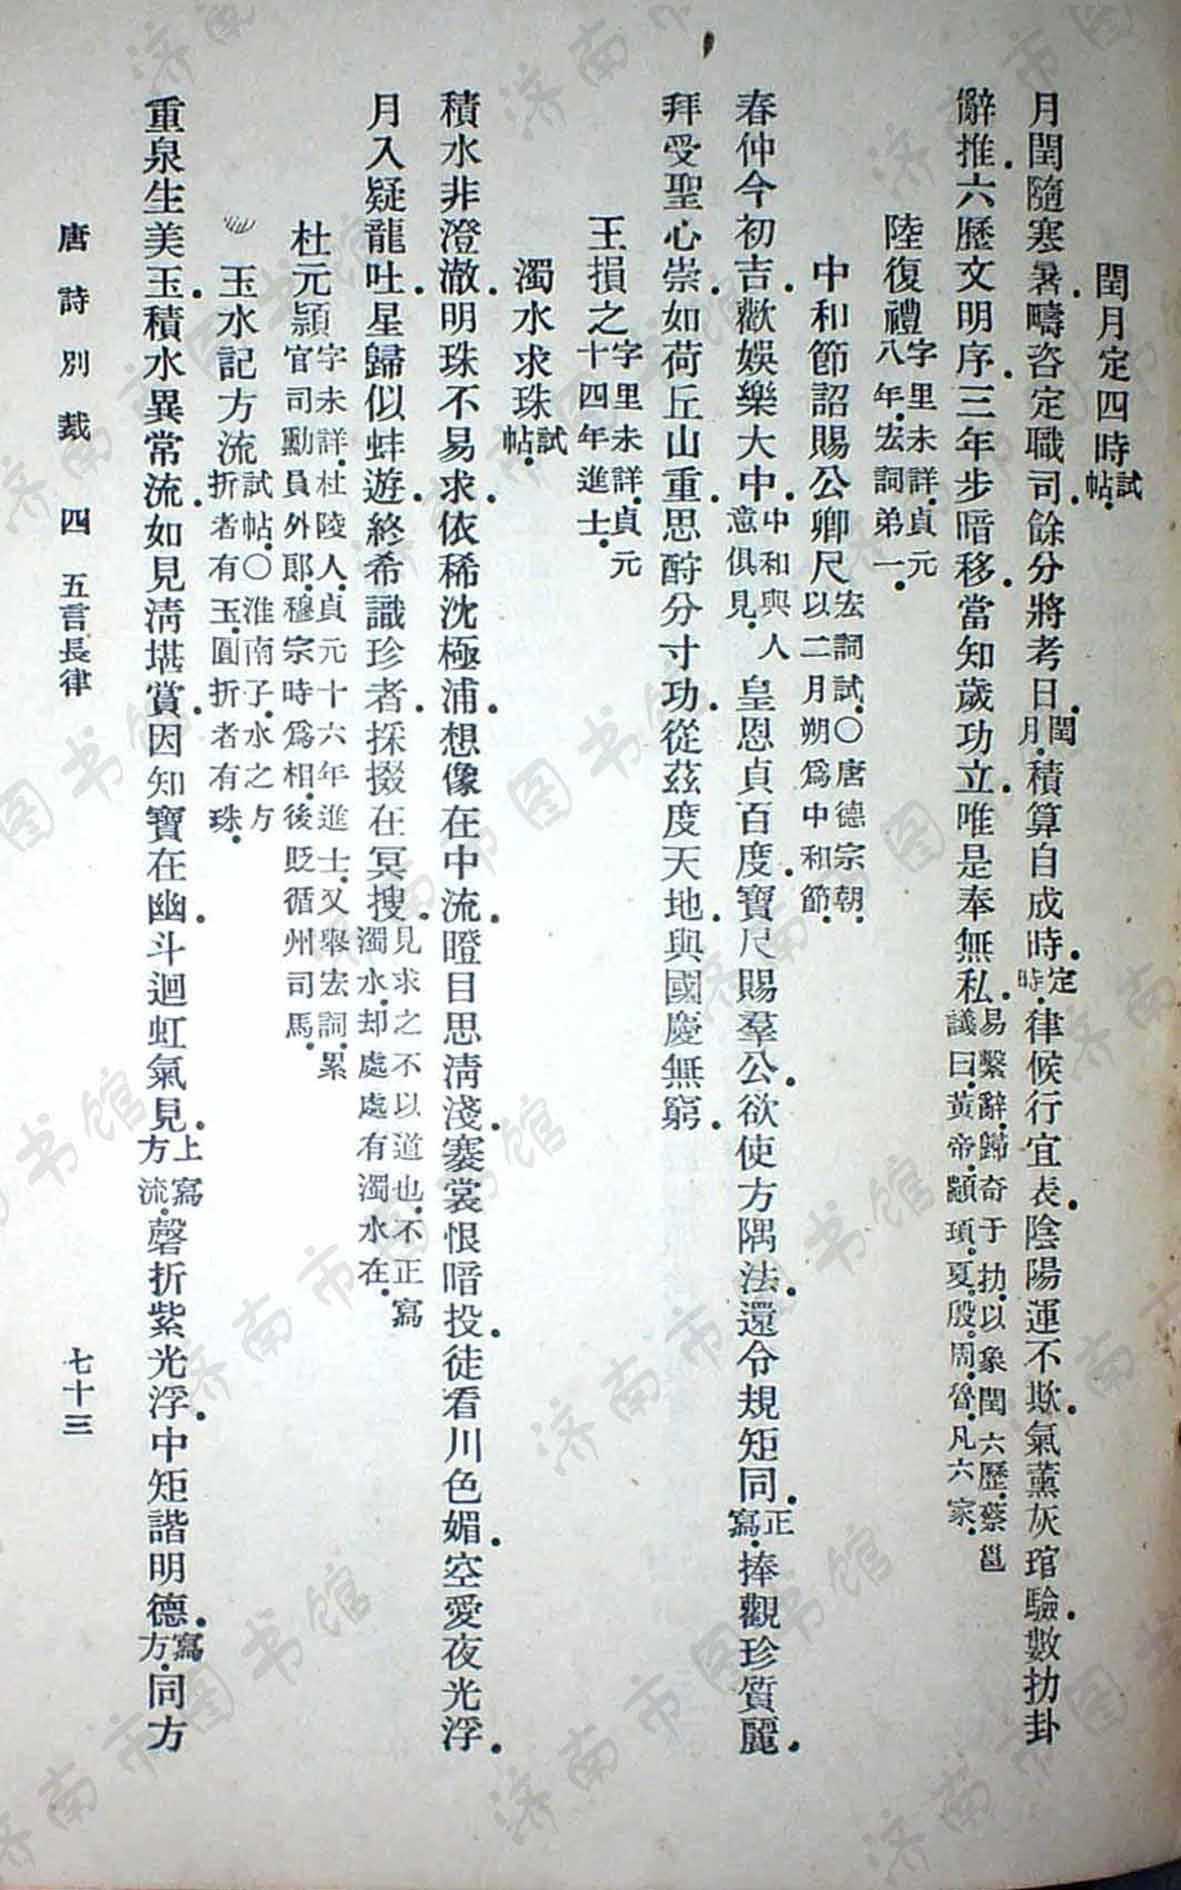 閏月定四時試帖.
月閏隨寒暑.疇咨定職司.餘分將考日.閏月.積算自成時.定時.律候行宜表.陰陽運不欺.氣薰灰琯驗.數扐卦
辭推.六歷文明序.三年步暗移.當知歲功立.唯是奉無私.易繫辭.歸奇于扐.以象閏六歷.蔡邕議曰.黃帝.顓頊.夏.殷.周.魯.凡六家.
陸復禮字里未詳.貞元八年.宏詞弟一.
中和節詔賜公卿尺宏詞試.〇唐德宗朝.以二月朔爲中和節.
春仲令初吉.歡娛樂大中.中和與人意俱見.皇恩貞百度.寶尺賜羣公.欲使方隅法.還令規矩同.正寫.捧觀珍質麗.
拜受聖心崇.如荷丘山重.思酧分寸功.從茲度天地.與國慶無窮.
王損之字里未詳.貞元十四年進士.
濁水求珠試帖.
積水非澄澈.明珠不易求.依稀沈極浦.想像在中流.瞪目思淸淺.褰裳恨暗投.徒看川色媚.空愛夜光浮.
月入疑龍吐.星歸似蚌遊.終希識珍者.採掇在冥搜.見求之不以道也.不正寫濁水.却處處有濁水在.
杜元穎字未詳.杜陵人.貞元十六年進士.又舉宏詞.累官司勳員外郞.穆宗時爲相.後貶循州司馬.
玉水記方流試帖.〇淮南子.水之方折者有玉.圓折者有珠.
重泉生美玉.積水異常流.如見淸堪賞.因知寶在幽.斗迴虹氣見.上寫方流.磬折紫光浮.中矩諧明德.寫方.同方
唐詩別裁 四 五言長律 七十三